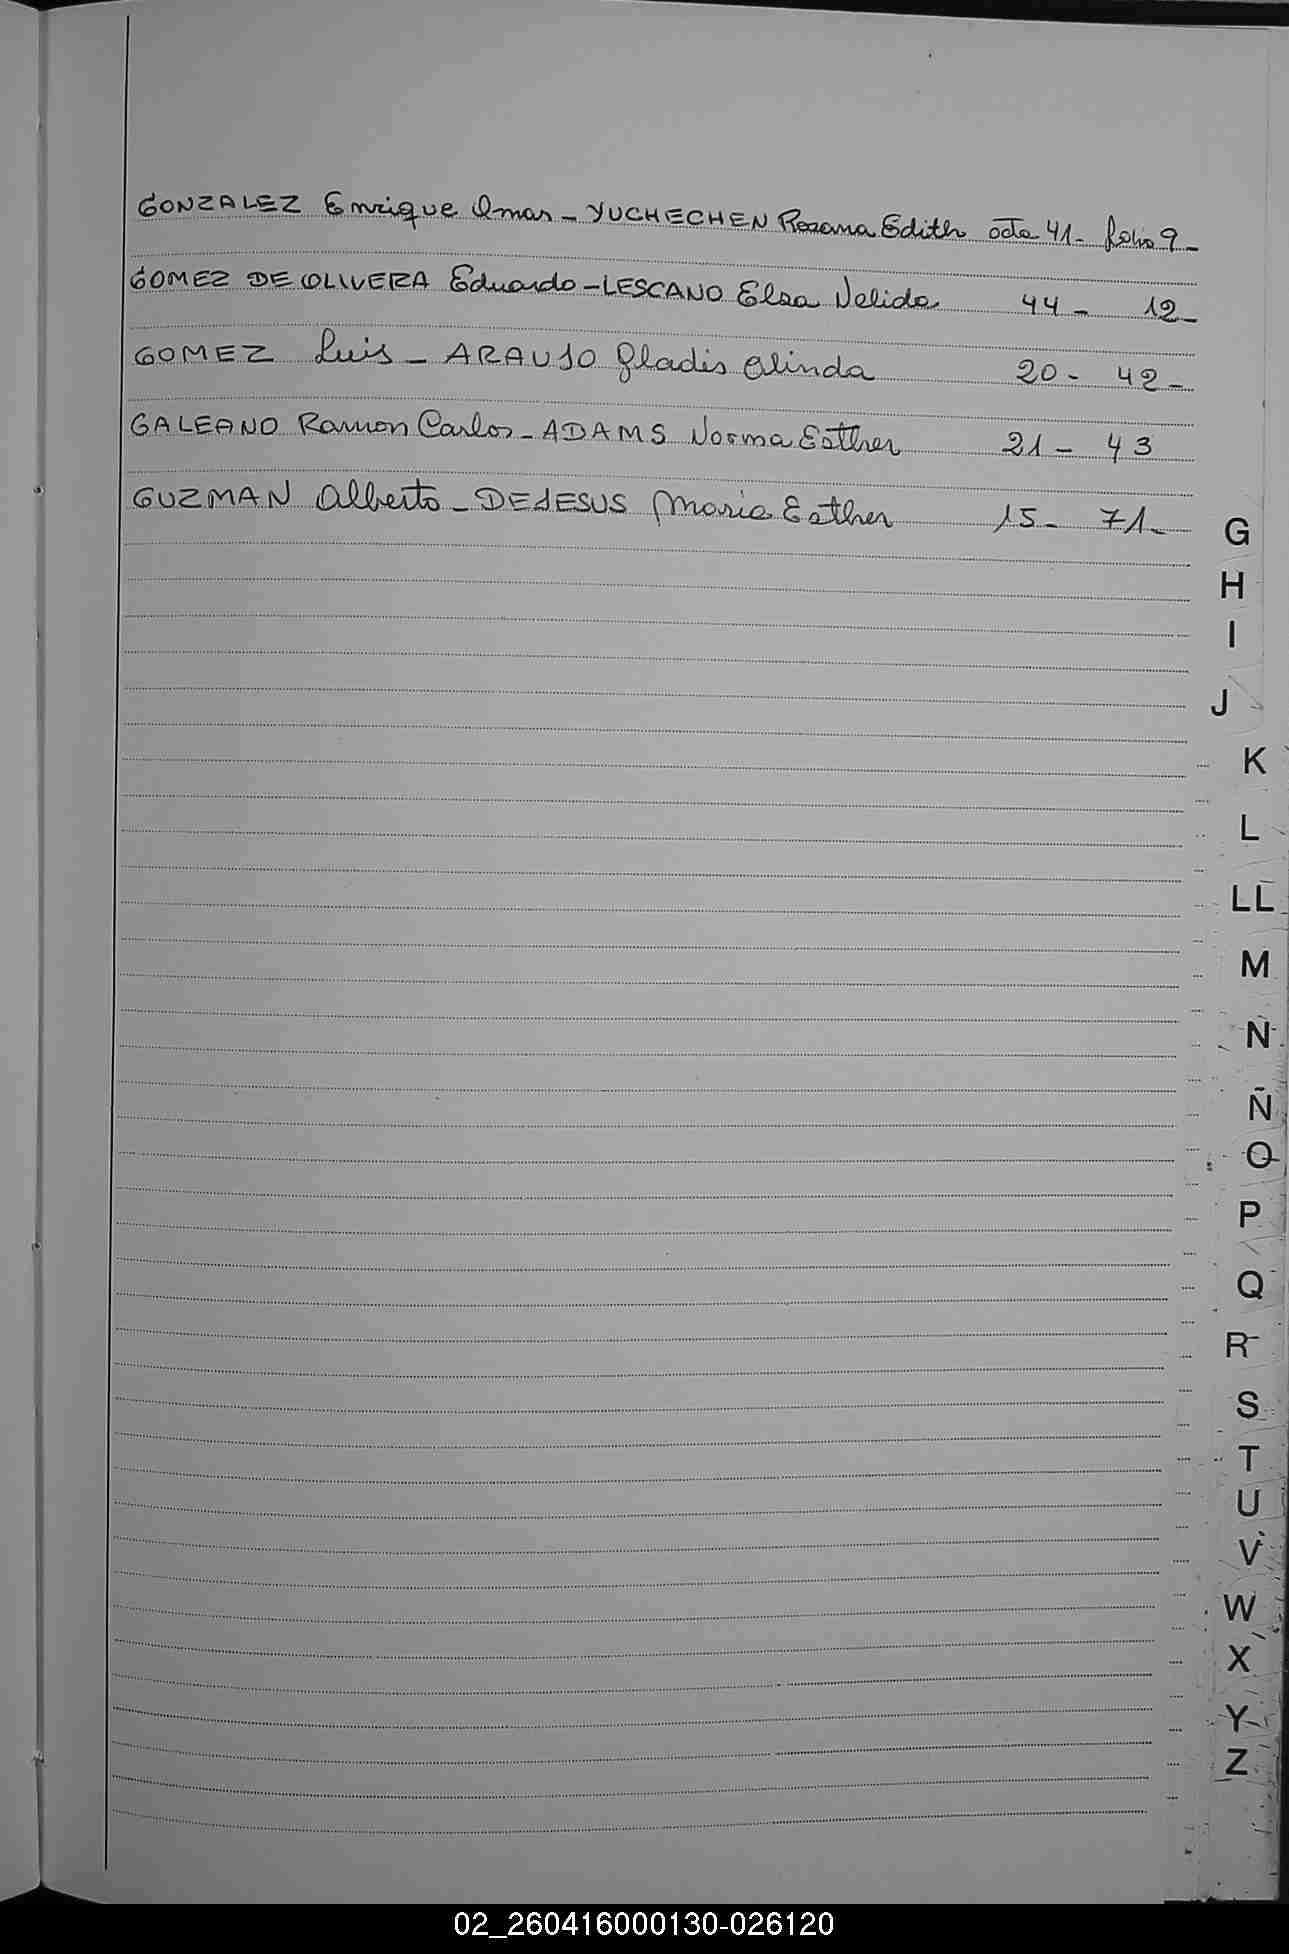 GONZALEZ Enrique Omar - YUCHECHEN Roxana Edith acta 41- folio 9-
GOMEZ DE OLIVERA Eduardo - LESCANO Elsa Nelida 44- 12-
GOMEZ Luis - ARAUJO Gladis Olinda 20- 42-
GALEANO Ramon Carlos - ADAMS Norma Esther 21- 43
GUZMAN Alberto - DEJESUS Maria Esther 15- 71-
G
H
I
J
K
L
LL
M
N
Ñ
O
P
Q
R
S
T
U
V
W
X
Y
Z
02_260416000130-026120